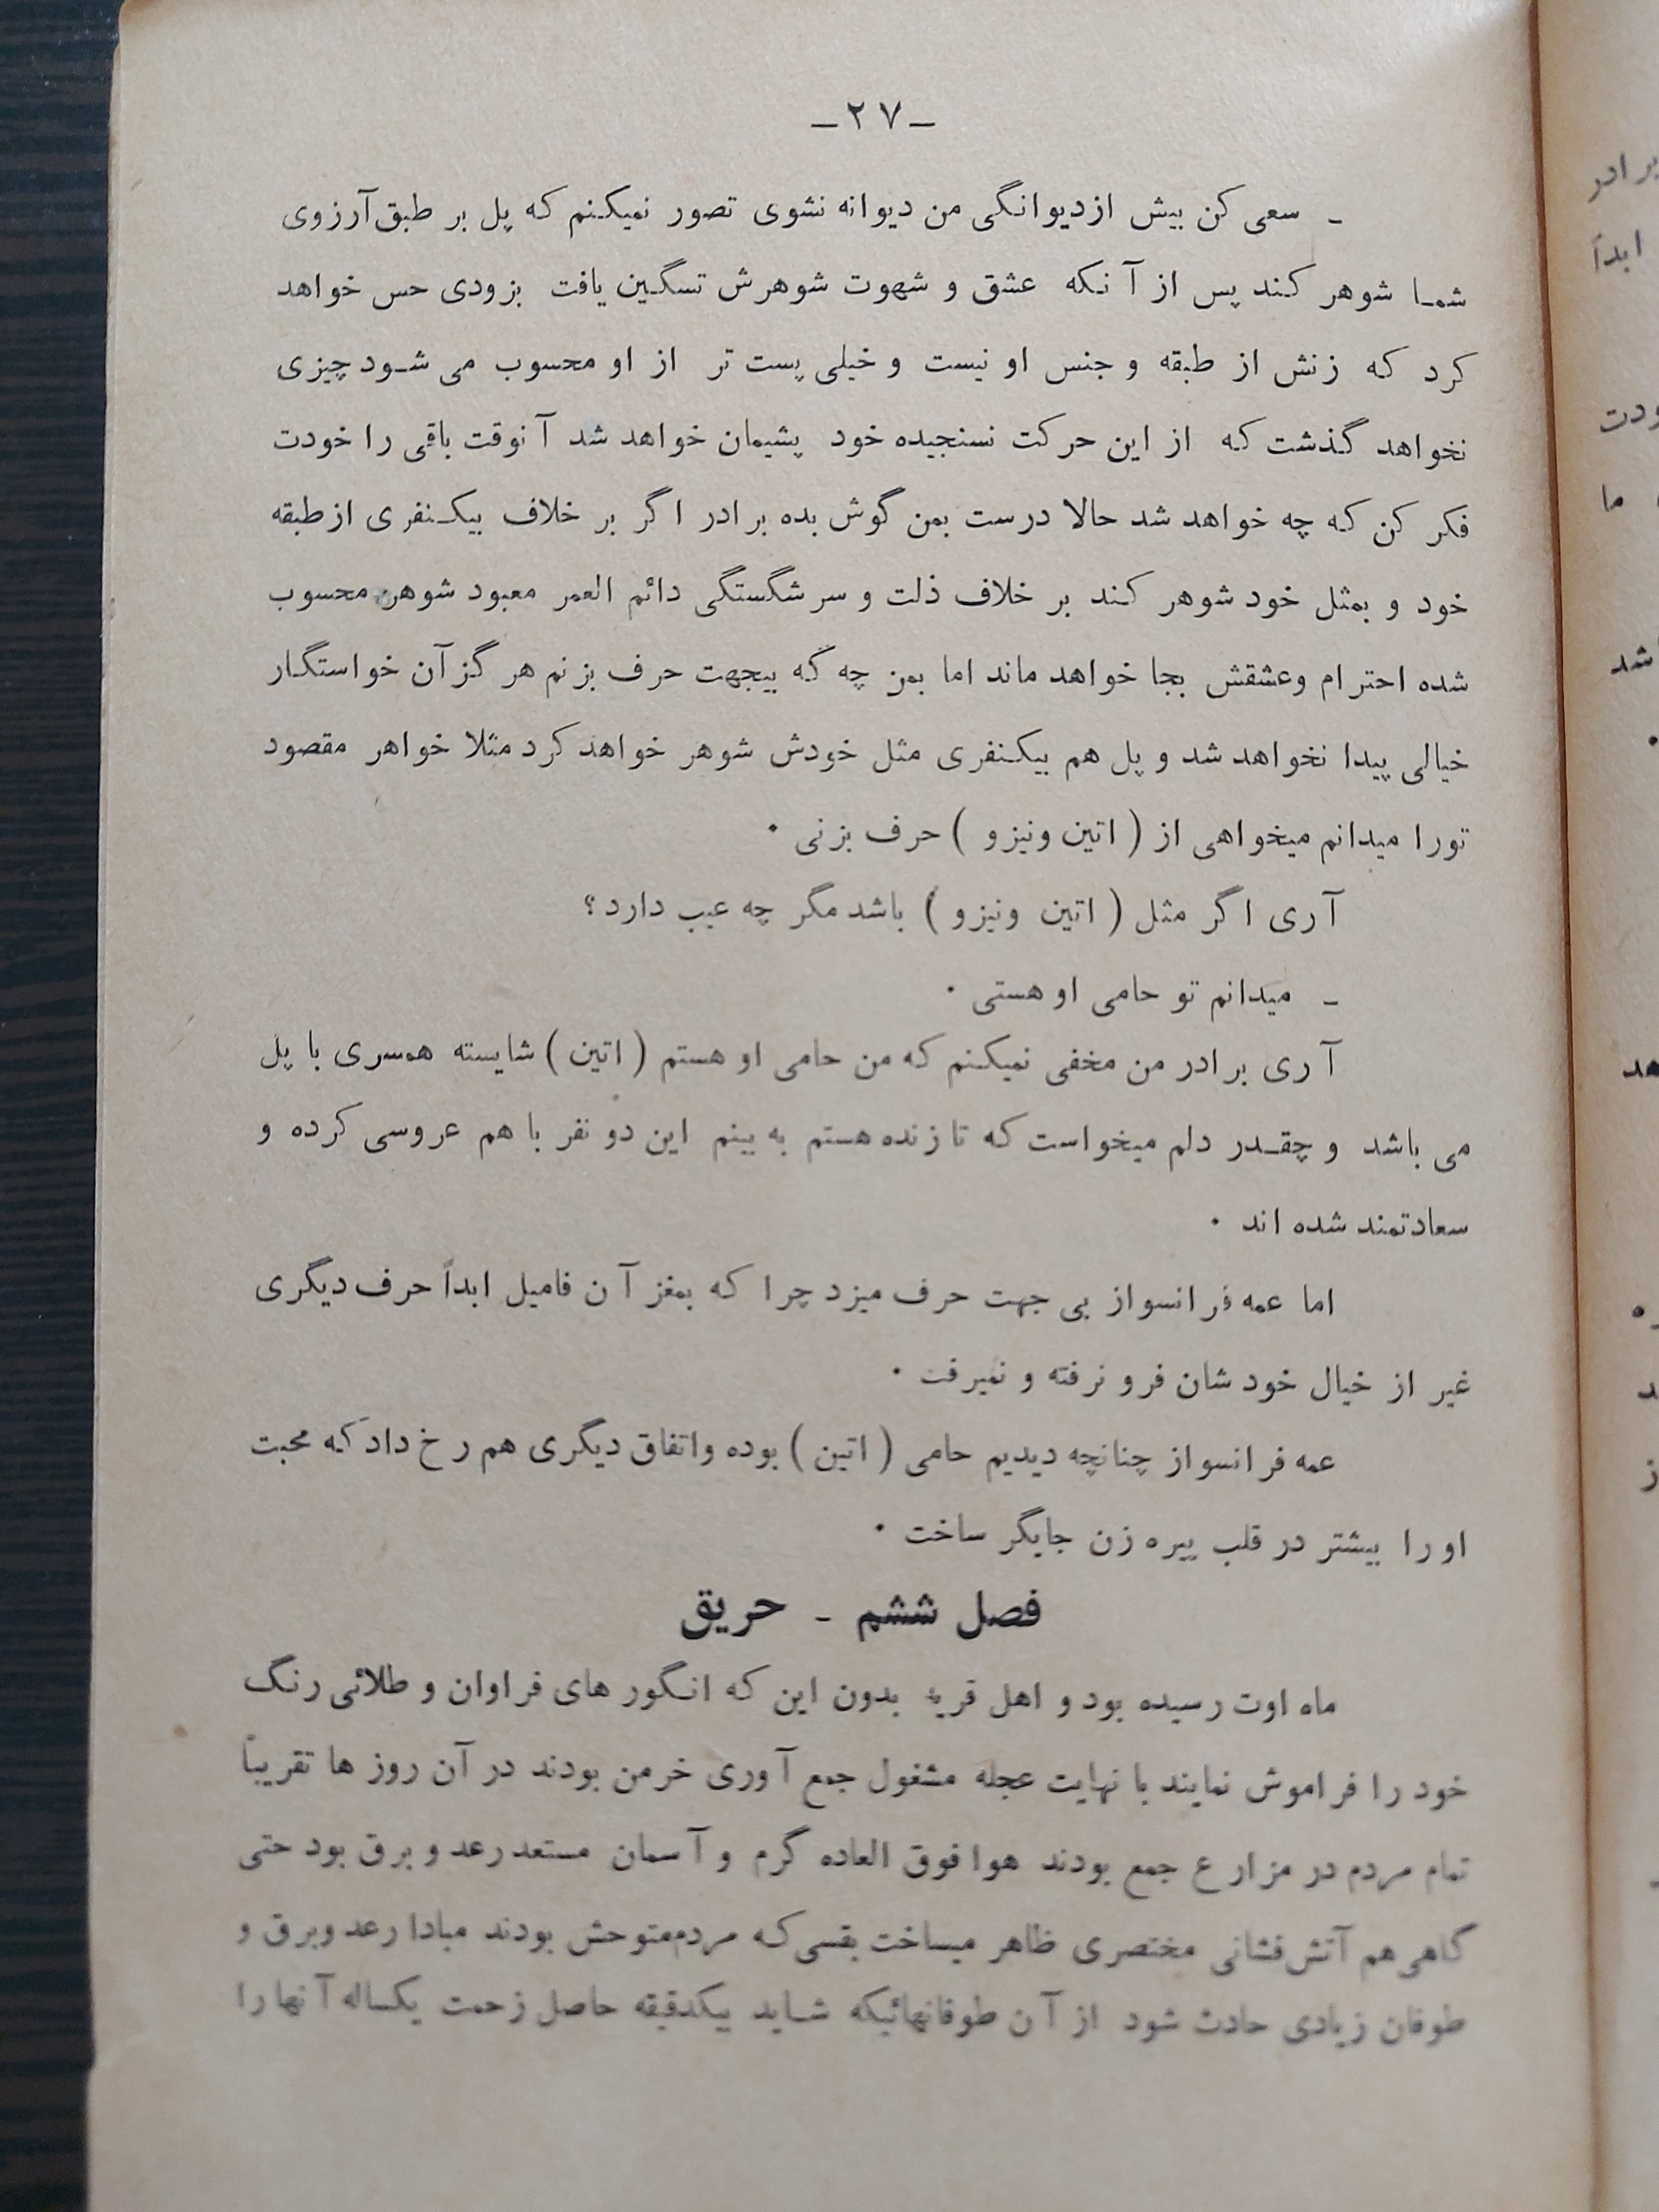 ـ۲۷ـ
ـ سعی کن بیش از دیوانگی من دیوانه نشوی تصور نمیکنم که پل بر طبق آرزوی
شما شوهر کند پس از آنکه عشق و شهوت شوهرش تسگین یافت بزودی حس خواهد
کرد که زنش از طبقه و جنس او نیست و خیلی پست تر از او محسوب می شود چیزی
نخواهد گذشت که از این حرکت نسنجیده خود پشیمان خواهد شد آنوقت باقی را خودت
فکر کن که چه خواهد شد حالا درست بمن گوش بده برادر اگر بر خلاف بیکنفری از طبقه
خود و بمثل خود شوهر کند بر خلاف ذلت و سرشگستگی دائم العمر معبود شوهر محسوب
شده احترام وعشقش بجا خواهد ماند اما بمن چه که بیجهت حرف بزنم هر گز آن خواستگار
خیالی پیدا نخواهد شد و پل هم بیکنفری مثل خودش شوهر خواهد کرد مثلا خواهر مقصود
تورا میدانم میخواهی از ( اتین ونیزو ) حرف بزنی .
آری اگر مثل ( اتین ونیزو ) باشد مگر چه عیب دارد ؟
ـ میدانم تو حامی او هستی .
آری برادر من مخفی نمیکنم که من حامی او هستم ( اتین ) شایسته همسری با پل
می باشد و چقدر دلم میخواست که تا زنده هستم به بینم این دو نفر با هم عروسی کرده و
سعادتمند شده اند .
اما عمه فرانسواز بی جهت حرف میزد چرا که بمغز آن فامیل ابداً حرف دیگری
غیر از خیال خودشان فرو نرفته و نمیرفت .
عمه فرانسواز چنانچه دیدیم حامی ( اتین ) بوده واتفاق دیگری هم رخ داد که محبت
او را بیشتر در قلب پیره زن جایگر ساخت .
فصل ششم ـ حریق
ماه اوت رسیده بود و اهل قریه بدون این که انگور های فراوان و طلائی رنگ
خود را فراموش نمایند با نهایت عجله مشغول جمع آوری خرمن بودند در آن روز ها تقریباً
تمام مردم در مزارع جمع بودند هوا فوق العاده گرم و آسمان مستعد رعد و برق بود حتی
گاهی هم آتش‌فشانی مختصری ظاهر میساخت بقسمی که مردم متوحش بودند مبادا رعد وبرق و
طوفان زیادی حادث شود از آن طوفانهائیکه شاید بیکدقیقه حاصل زحمت یکساله آنها را